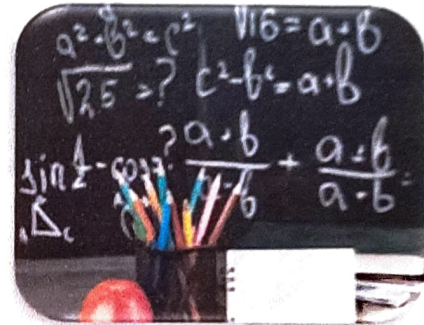 a² + b² = c²   √16 = a + b
√25 = ?   c² - b² = a + b
sin ½ - cos ?   a + b / a - b + a + b / a - b =